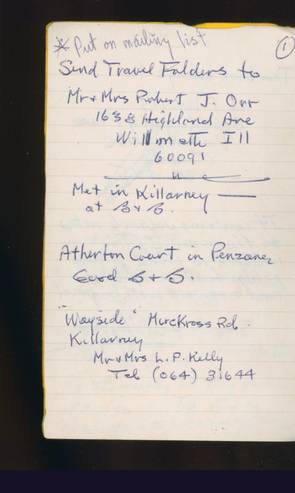 * Put on mailing list
1
Send Travel Folders to
Mr & Mrs Robert J. Orr
1638 Highland Ave
Willmette Ill
60091
Met in Killarney —
at B & B.
Atherton Court in Penzance
Good B & B.
"Wayside" Muckross Rd.
Killarney
Mr & Mrs L. P. Kelly
Tel (064) 31644